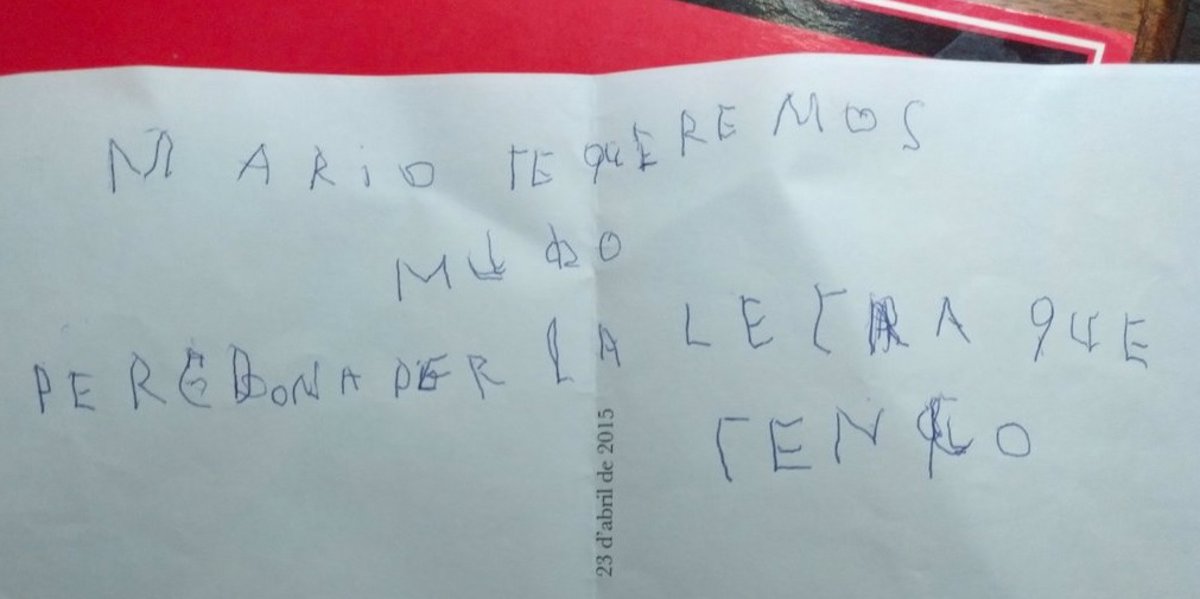 MARIO TE QUEREMOS
MUDO
PEREDONA PER LA LETRA QUE
TENGO
23 d'abril de 2015